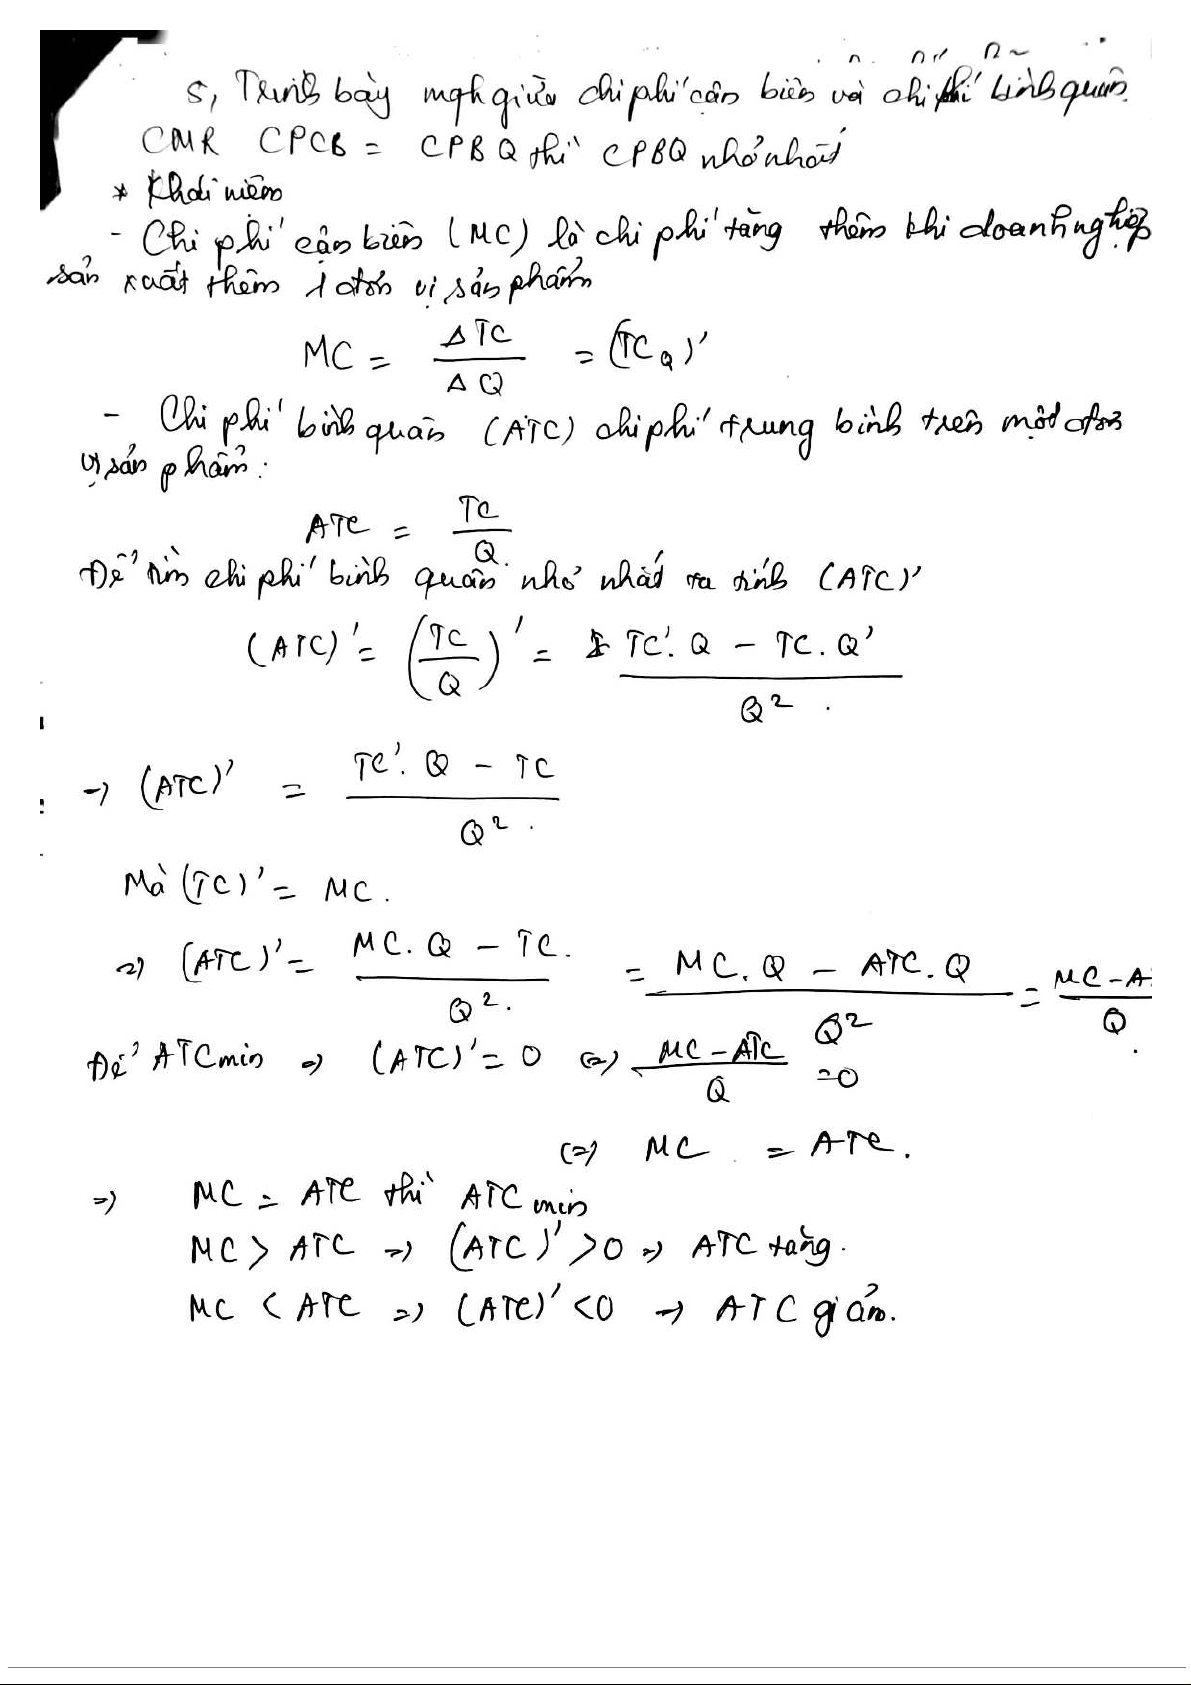 5, Trình bày mqh giữa chi phí cận biên và chi phí bình quân.
CMR CPCB = CPBQ thì CPBQ nhỏ nhất
* Khái niệm
- Chi phí cận biên (MC) là chi phí tăng thêm khi doanh nghiệp
sản xuất thêm 1 đơn vị sản phẩm
MC = ΔTC / ΔQ = (TC_Q)'
- Chi phí bình quân (ATC) chi phí trung bình trên một đơn
vị sản phẩm:
ATC = TC / Q.
Để tìm chi phí bình quân nhỏ nhất ta tính (ATC)'
(ATC)' = (TC / Q)' = (TC'. Q - TC. Q') / Q².
→ (ATC)' = (TC'. Q - TC) / Q².
Mà (TC)' = MC.
=> (ATC)' = (MC. Q - TC.) / Q². = (MC. Q - ATC. Q) / Q² = (MC - A) / Q.
Để ATCmin => (ATC)' = 0 (=) (MC - ATC) / Q = 0
(=) MC = ATC.
=> MC = ATC thì ATC min
MC > ATC => (ATC)' > 0 => ATC tăng.
MC < ATC => (ATC)' < 0 → ATC giảm.